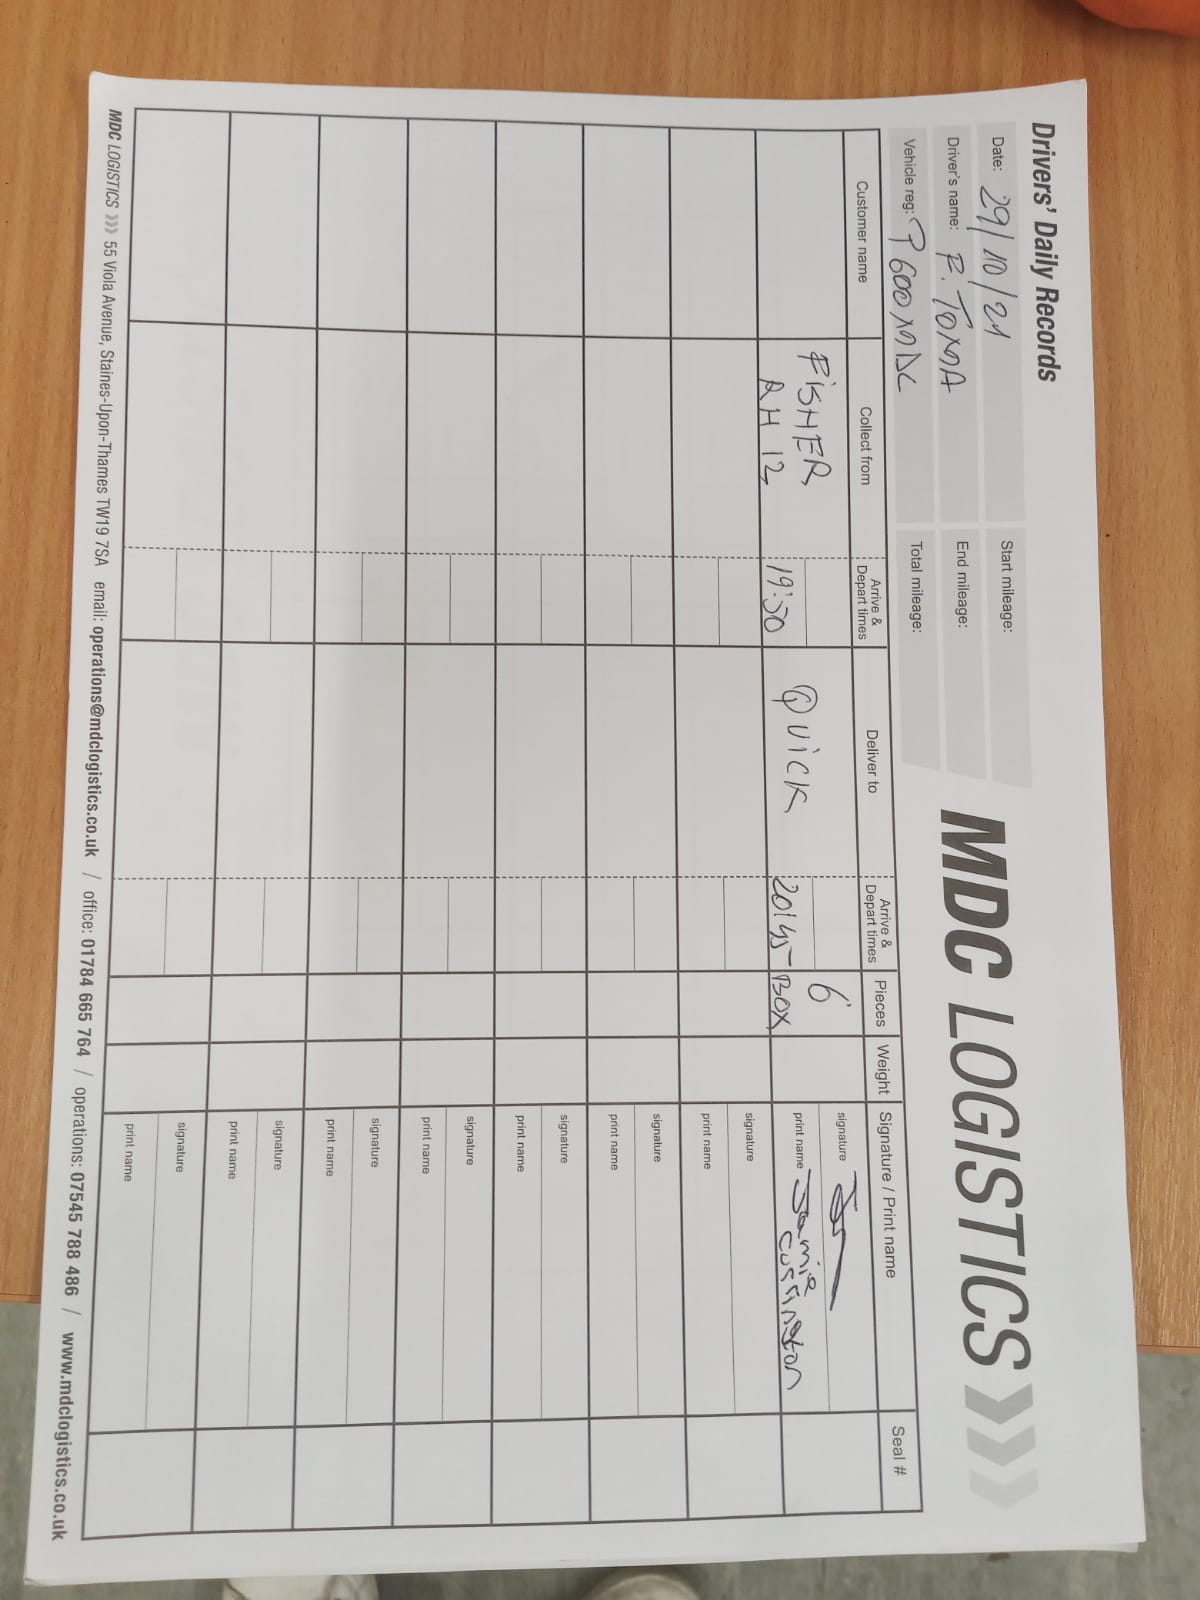 Drivers' Daily Records
MDC LOGISTICS
Date: 29/10/21
Start mileage:
Driver's name: F. TOMA
End mileage:
Vehicle reg: P600MDC
Total mileage:
Customer name Collect from Arrive & Depart times Deliver to Arrive & Depart times Pieces Weight Signature / Print name Seal #
FISHER QUICK 6 signature
RH 12 19:50 BOX print name Jamie
signature
print name
signature
print name
signature
print name
signature
print name
signature
print name
signature
print name
signature
print name
MDC LOGISTICS 55 Viola Avenue, Staines-Upon-Thames TW19 7SA email: operations@mdclogistics.co.uk / office: 01784 665 764 / operations: 07545 788 486 / www.mdclogistics.co.uk